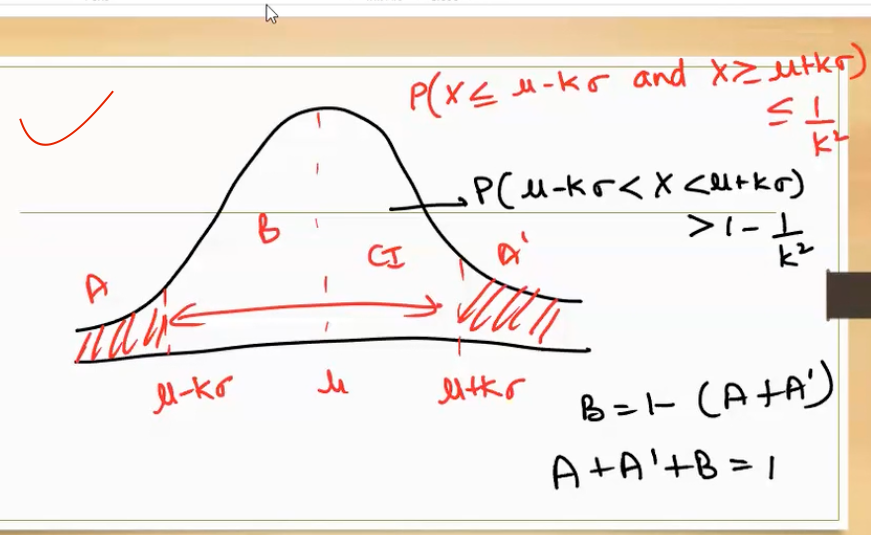 P(X ≤ μ-kσ and X ≥ μ+kσ)
≤ 1/k²
P(μ-kσ < X < μ+kσ)
> 1 - 1/k²
B
CI
A'
A
μ-kσ μ μ+kσ
B = 1 - (A + A')
A + A' + B = 1